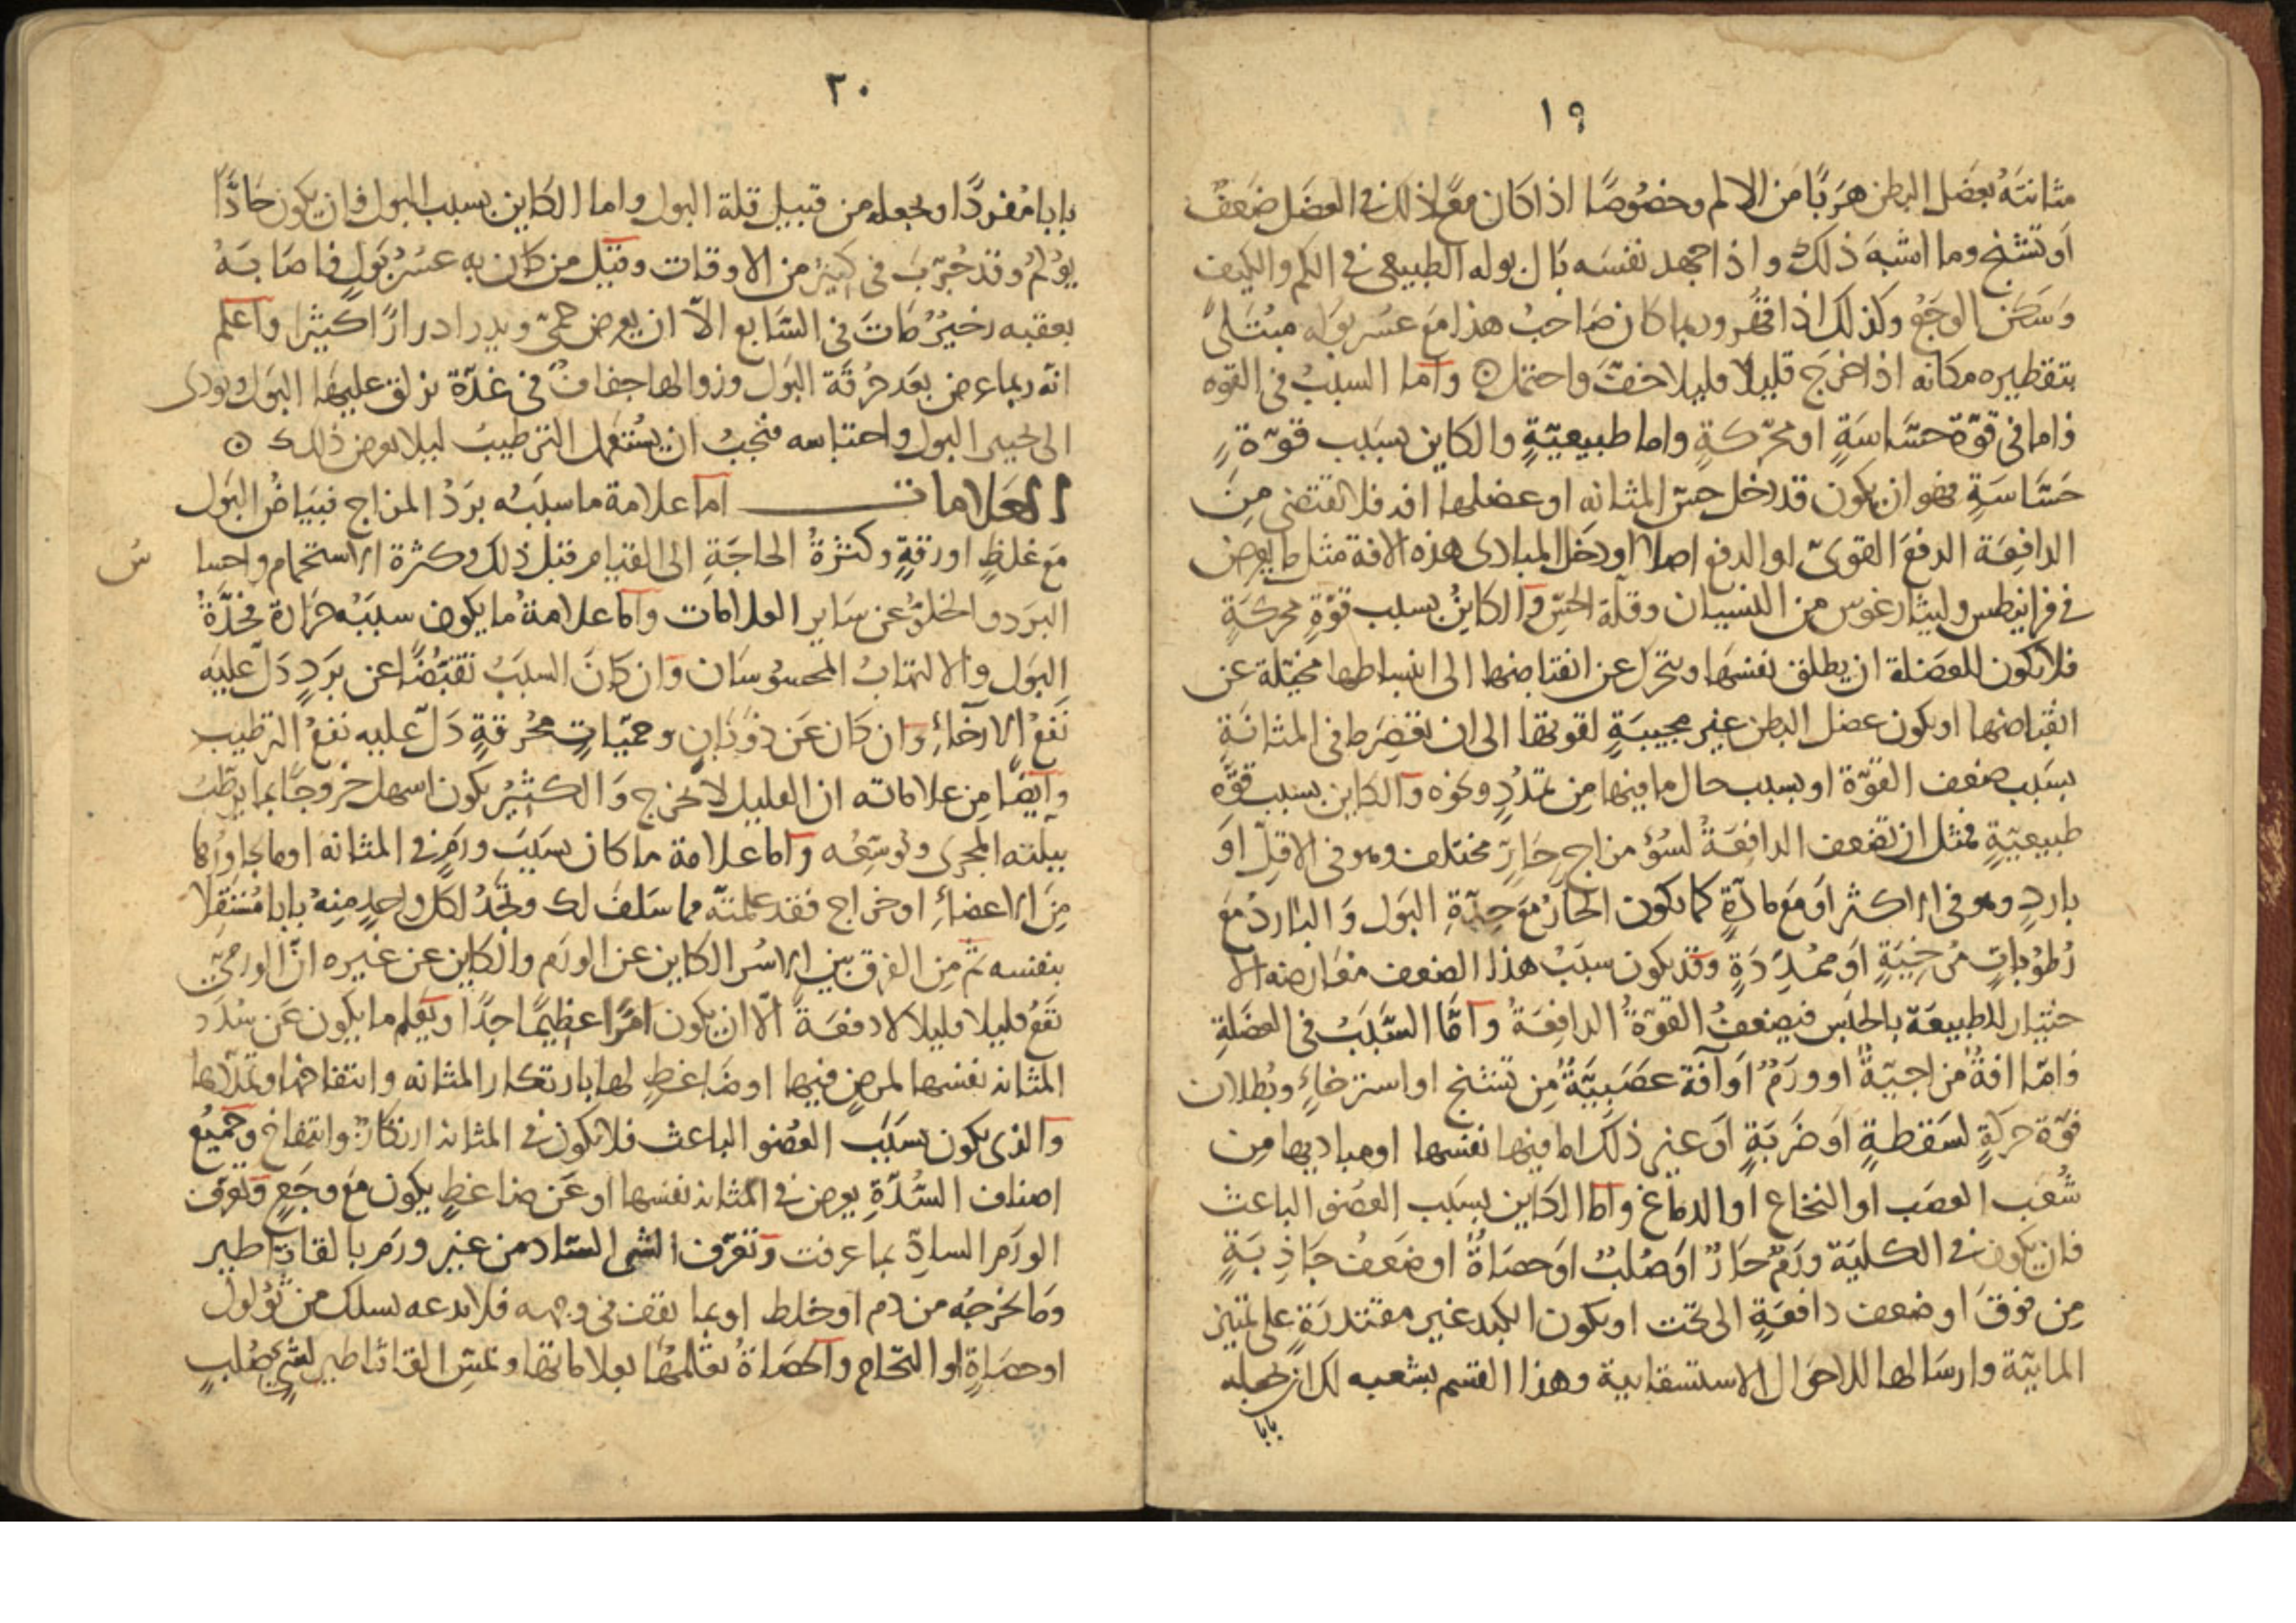 ١٩
مثانته بعضل البطن هربًا من الالم وخصوصًا اذا كان مع ذلك في العضل ضعف
او تشنج وما اشبه ذلك واذا اجهد نفسه بال بوله الطبيعي في الكم والكيف
وسكن الوجع وكذلك اذا وربما كان صاحب هذا مع عسر بوله مبتلىً
بتقطيره مكانه اذا اخرج قليلا قليلا خف واحتمل ۞ وآما السبب في القوه
فاما في قوّة حسّاسةٍ او محرّكةٍ واما طبيعيّةٍ والكاين بسبب قوّةٍ
حسّاسةٍ فهو ان يكون قد دخل حسّ المثانه او عضلها افه فلا تقتضي من
الدافعة الدفع القويّ او الدفع اصلا او دخل المبادى هذه الافة مثل ما يعرض
في قرانيطس وليثارغوس من النسيان وقلّة الحِسّ وآلكاين بسبب قوّةٍ محركةٍ
فلا يكون للعضلة ان يطلق نفسها ويتحرّك عن انقباضها الى انبساطها مخيّلة عن
انقباضها او يكون عضل البطن غير مجيبةٍ لقوتها الى ان تعصر ما في المثانةِ
بسبب ضعف القوّة او بسبب حال ما فيها من تمدّدٍ ونحوه وآلكاين بسبب قوّه
طبيعيّةٍ فمثل ان تضعف الدافعةُ لسوء مزاجٍ حارّ مختلف وهو في الاقلّ او
باردٍ وهو في الاكثر او مع مادّةٍ كما يكون الحارّ مع حدّةِ البول والبارد مع
رُطوباتٍ مُرخيةٍ او ممدّدةٍ وقد يكون سبب هذا الضعف معارضه الا
ختيار للطبيعة بالحبس فيضعفُ القوّةُ الدافعةُ وآمّا السّبب في العضلةِ
فامّا افةٌ مزاجيّةٌ او ورمٌ او آفة عصبيّةٌ من تشنج او استرخاءٍ وبُطلان
قوّة حركةٍ لسقطةٍ او ضربةٍ او غير ذلك اما فيها نفسها او مباديها من
شُعب العصب او النخاع او الدماغ وآما الكاين بسبب العضو الباعث
فان يكون في الكلية ورمٌ حارٌّ او صُلبٌ او حصاةٌ او ضعف جاذبةٍ
من فوق او ضعف دافعةٍ الى تحت او يكون الكبد غير مقتدرةٍ على تمييز
المائية وارسالها للاحوال الاستسقائية وهذا القسم يشعبه لك ان نجعله
بابا
٢٠
بابا مُفردًا ونجعله من قبيل قلة البول واما الكاين بسبب البول فان يكون حادًّا
يؤلم وقد جُرّب في كثير من الاوقات وقيل من كان به عسر بول فاصابهُ
بعقبه زخيرٌ مات في السّابع الّا ان يعرض حمّى ويدر ادرارًا كثيرا وآعلم
انه ربما عرض بعد حرقة البول وزوالها جفاف في غدّة يزلق عليها البول ويؤدى
الى البول واحتباسه فيجب ان يستعمل الترطيب ليلا يعرض ذلك ۞
العلامات آما علامة ما سببه بردُ المزاج فبياضُ البول
مع غلظٍ او رقةٍ وكثرةُ الحاجةِ الى القيام قبل ذلك وكثرة الاستحمام واحسا
س
البرد والخلوّ عن ساير العلامات وآما علامةُ ما يكون سببه حرارة فحدّةُ
البول والالتهابُ المحسوسان وآن كان السبب تقبّضًا عن بردٍ دلّ عليه
نفعُ الارخاءِ وآن كان عن ذوبانٍ وحميّاتٍ مُحرقةٍ دلّ عليه نفعُ الترطيب
وآيضًا من علاماته ان القليل لا يخرج والكثير يكون اسهل خروجًا بما يرطّبُ
بيلّته المجرى ويُوسّعُه وآما علامة ما كان بسبب ورمٍ في المثانة او ما يجاورُها
من الاعضاءِ او خراج فقد علمتهُ مما سلف لك وتجدُ لكل واحدٍ منهُ بابا مُستقلا
بنفسه ثم من الفرق بين الاسر الكاين عن الورم والكاين عن غيره انّ الورميّ
يقع قليلا قليلا لا دفعةً الّا ان يكون امرًا عظيمًا جدًّا وتعلم ما يكون عن سدد
المثانه نفسها لمرضٍ فيها او ضاغطٍ لها بارتكاز المثانه وانتفاخها وتمدّدها
وآلذى يكون بسبب العضو الباعث فلا يكون في المثانه ارتكازٌ وانتفاخ وجميعُ
اصناف السُّدّةِ يعرض في المثانه نفسها او عن ضاغطٍ يكون مع وجعٍ وتعرّف
الورم السادّ بما عرفت وتعرّف الشى السّاد من غير ورم بالقاثاطير
وما يخرجه من دم او خلط او بما يقف في وجهه فلا يدعه يسلك من ثؤلول
او حصاةٍ او التحام وآلحصاةُ تعلمها بعلاماتها وبمسّ القاثاطير لشيءٍ صُلبٍ